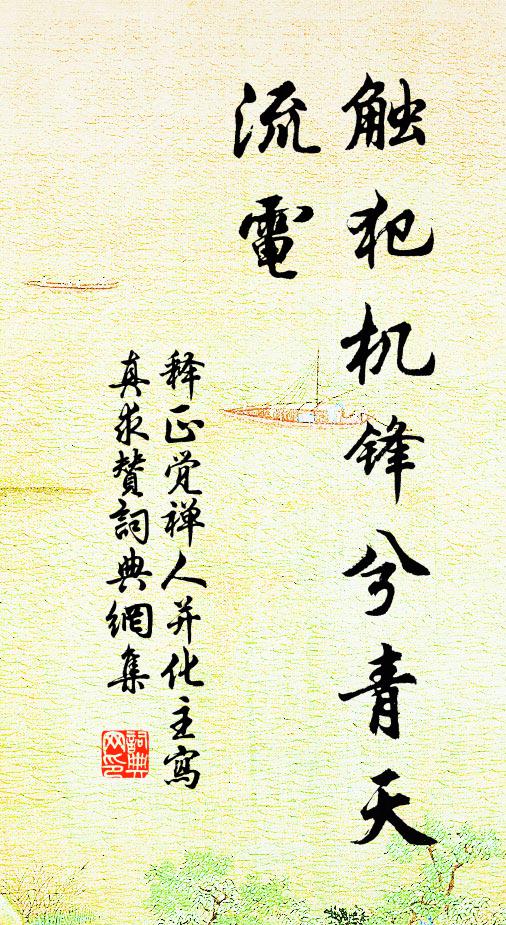 触犯机锋兮青天
流電
释正觉禅人并化主寫
真求賛詞典網集
詞典
网印